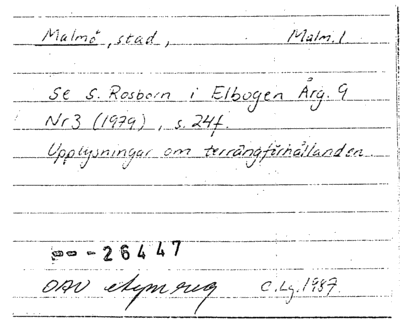 Malmö, stad, Malm. 1
Se S. Rosborn i Elbogen Årg. 9
Nr 3 (1979), s. 24f.
Upplysningar om terrängförhållanden.
-26447
OAU C.Lg. 1987.